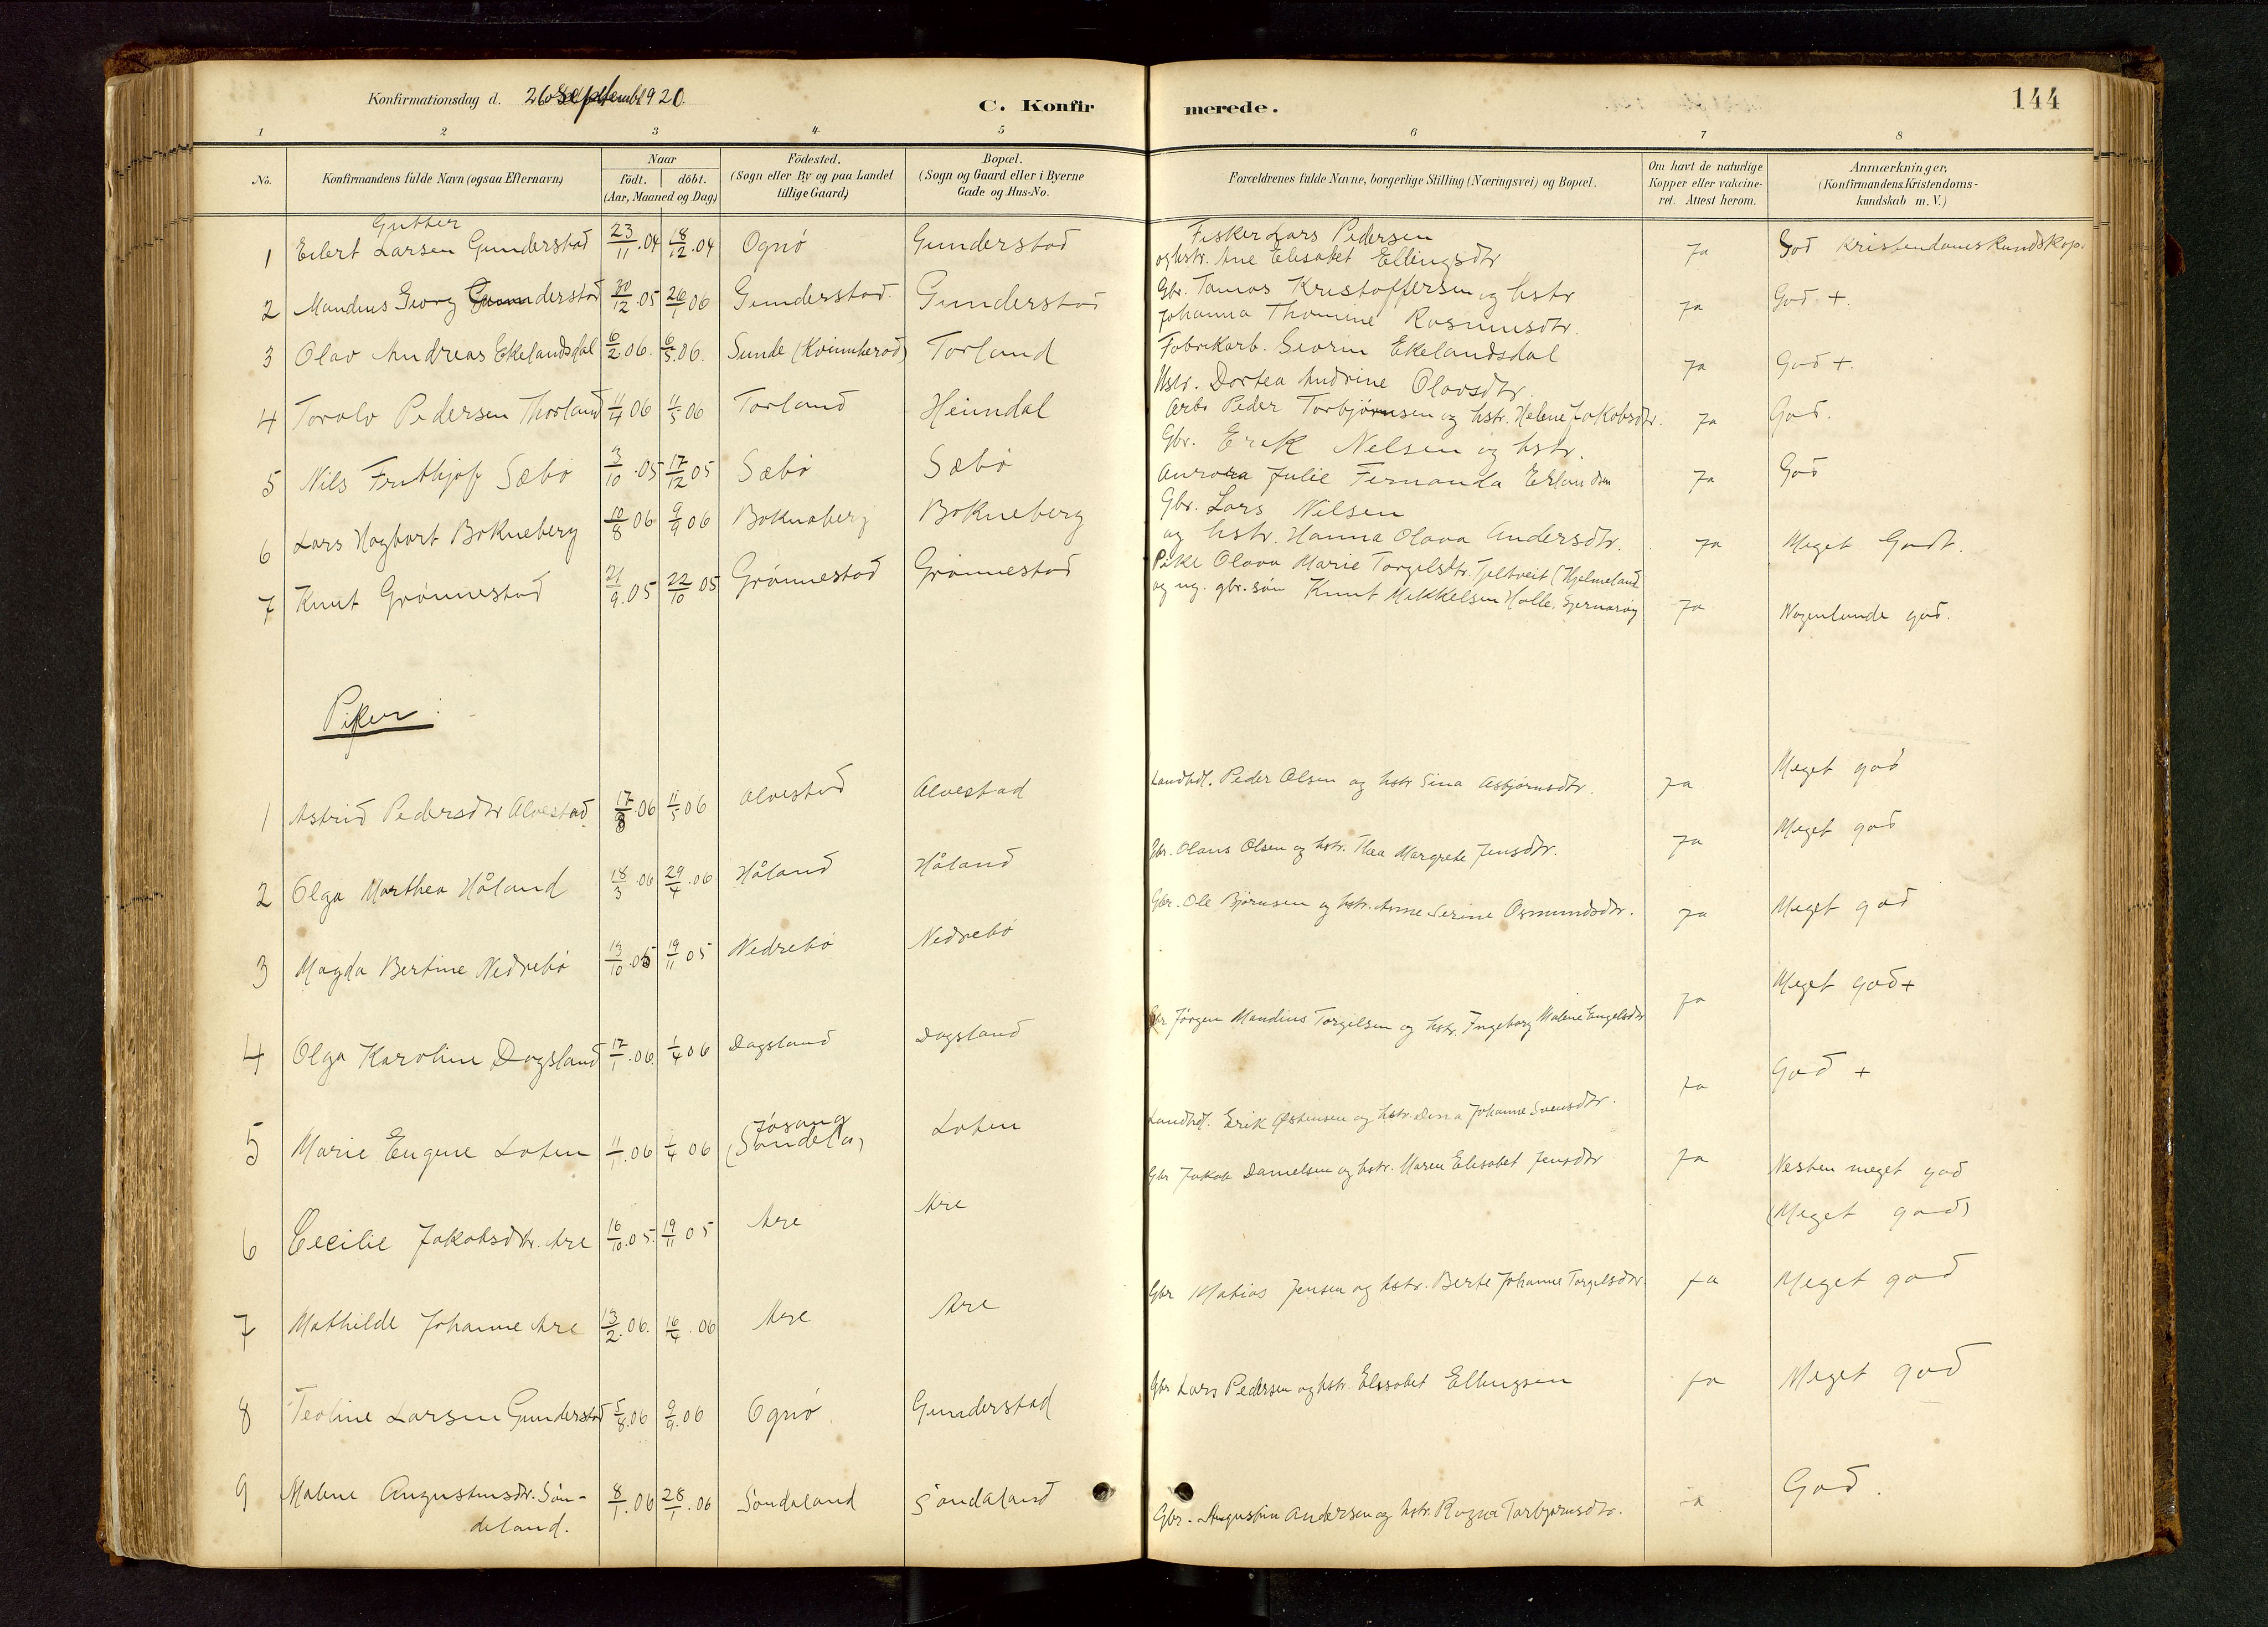 Konfirmationsdag d. 26 September 1920.
C. Konfirmerede.
144
1 2 3 4 5 6 7 8
No.
Konfirmandens fulde Navn (ogsaa Efternavn)
Naar
födt. döbt.
(Aar, Maaned og Dag)
Födested.
(Sogn eller By og paa Landet
tillige Gaard)
Bopæl.
(Sogn og Gaard eller i Byerne
Gade og Hus-No.
Forældrenes fulde Navne, borgerlige Stilling (Næringsvei) og Bopæl.
Om havt de naturlige
Kopper eller vakcine-
ret. Attest herom.
Anmærkninger.
(Konfirmandens Kristendoms-
kundskab m. V.)
Gutter
1 Eilert Larsen Gunderstad 23/11.04 18/12.04 Ognø Gunderstad Fisker Lars Pedersen
og hstr. Ane Elisabet Ellingsdtr ja God Kristendomskundskap.
2 Mandius Georg Gunderstad 30/12.05 26/1 06 Gunderstad. Gunderstad Gbr. Tomas Kristoffersen og hstr
Johanna Thomine Rasmusdtr. ja God +.
3 Olav Andreas Ekelandsdal 6/2.06. 6/5.06. Sunde (Kvinnherad) Torland Fabrikarb. Georin Ekelandsdal
Hstr. Dortea Andrine Olavsdtr. ja God +.
4 Toralv Pedersen Thorland 11/4 06 11/5 06 Torland Heimdal Arb. Peder Torbjørnsen og hstr. Helene Jakobsdtr. ja God.
5 Nils Fritthjof Sæbø 3/10.05 17/12 05 Sæbø Sæbø Gbr. Erik Nelsen og hstr.
Aurora Julie Fernanda Erlandsen ja God
6 Lars Hagbart Bokneberg 10/8 06 9/9 06 Boknaberg Bokneberg Gbr. Lars Nilsen
og hstr. Hanna Olava Andersdtr. ja Meget Godt.
7 Knut Grønnestad 21/9.05 22/10 05 Grønnestad Grønnestad Pike Olava Marie Torgilsdtr. Tjeltveit (Hjelmeland
og ug. gbr. søn Knut Mikkelsen Halle, Sjernarøy ja Nogenlunde god.
Piker:
1 Astrid Pedersdtr Alvestad 17/3.06 11/5 06 Alvestad Alvestad Landhdl. Peder Olsen og hstr Sina Asbjørnsdtr. ja Meget god
2 Olga Marthea Håland 18/3.06 29/4.06 Håland Håland Gbr. Olaus Olsen og hstr. Thea Margrete Jensdtr. ja Meget god
3 Magda Bertine Nedrebø 13/10.05 19/11 05 Nedrebø Nedrebø Gbr. Ole Bjørnsen og hstr. Anne Serine Osmundsdtr. ja Meget god
4 Olga Karoline Dagsland 17/1.06. 1/4 06 Dagsland Dagsland Gbr Jørgen Mandius Torgilsen og hstr. Ingeborg Malene Engelsdtr ja Meget god+
5 Marie Eugene Loten 11/1.06 1/4 06 Jøsang
(Sandeid) Loten Landhdl. Erik Østensen og hstr. Dina Johanne Svensdtr. ja God +
6 Cecilie Jakobsdtr. Are 16/10.05. 19/11 05 Are Are Gbr Jakob Danielsen og hstr. Maren Elisabet Jensdtr ja Nesten meget god
(Meget god)
7 Mathilde Johanne Are 13/2.06. 16/4.06 Are Are Gbr Matias Jensen og hstr. Berte Johanne Torgilsdtr. ja Meget god
8 Teoline Larsen Gunderstad 5/8.06 9/9.06 Ognø Gunderstad Gbr Lars Pedersen og hstr. Elisabet Ellingsen ja Meget god
9 Malene Augustinsdtr. Søn-
deland. 8/1.06 28/1.06 Søndaland Søndaland Gbr. Augustin Andersen og hstr. Ragna Torbjørnsdtr. ja God.